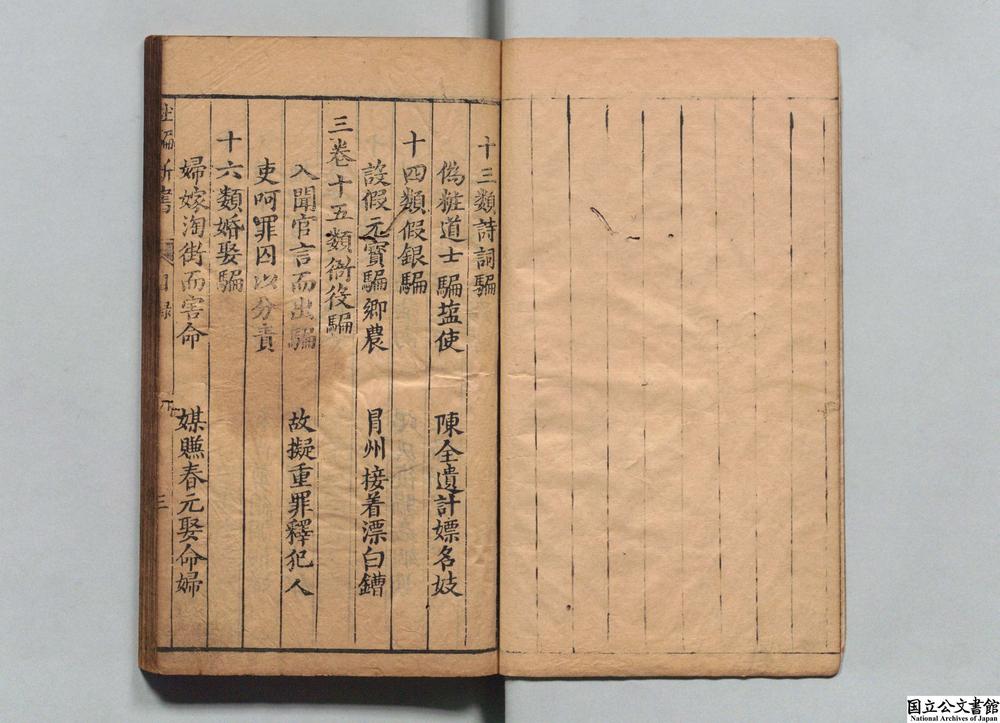 十三類詩詞騙
偽粧道士騙塩使　陳全遺計嫖名妓
十四類假銀騙
設假元寶騙鄉農　冐州接着漂白鏪
三卷十五類衙役騙
入聞官言而出騙　故擬重罪釋犯人
吏呵罪囚以分責
十六類婚娶騙
婦嫁淘街而害命　媒賺春元娶命婦
騙新書　目錄　三
国立公文書館
National Archives of Japan